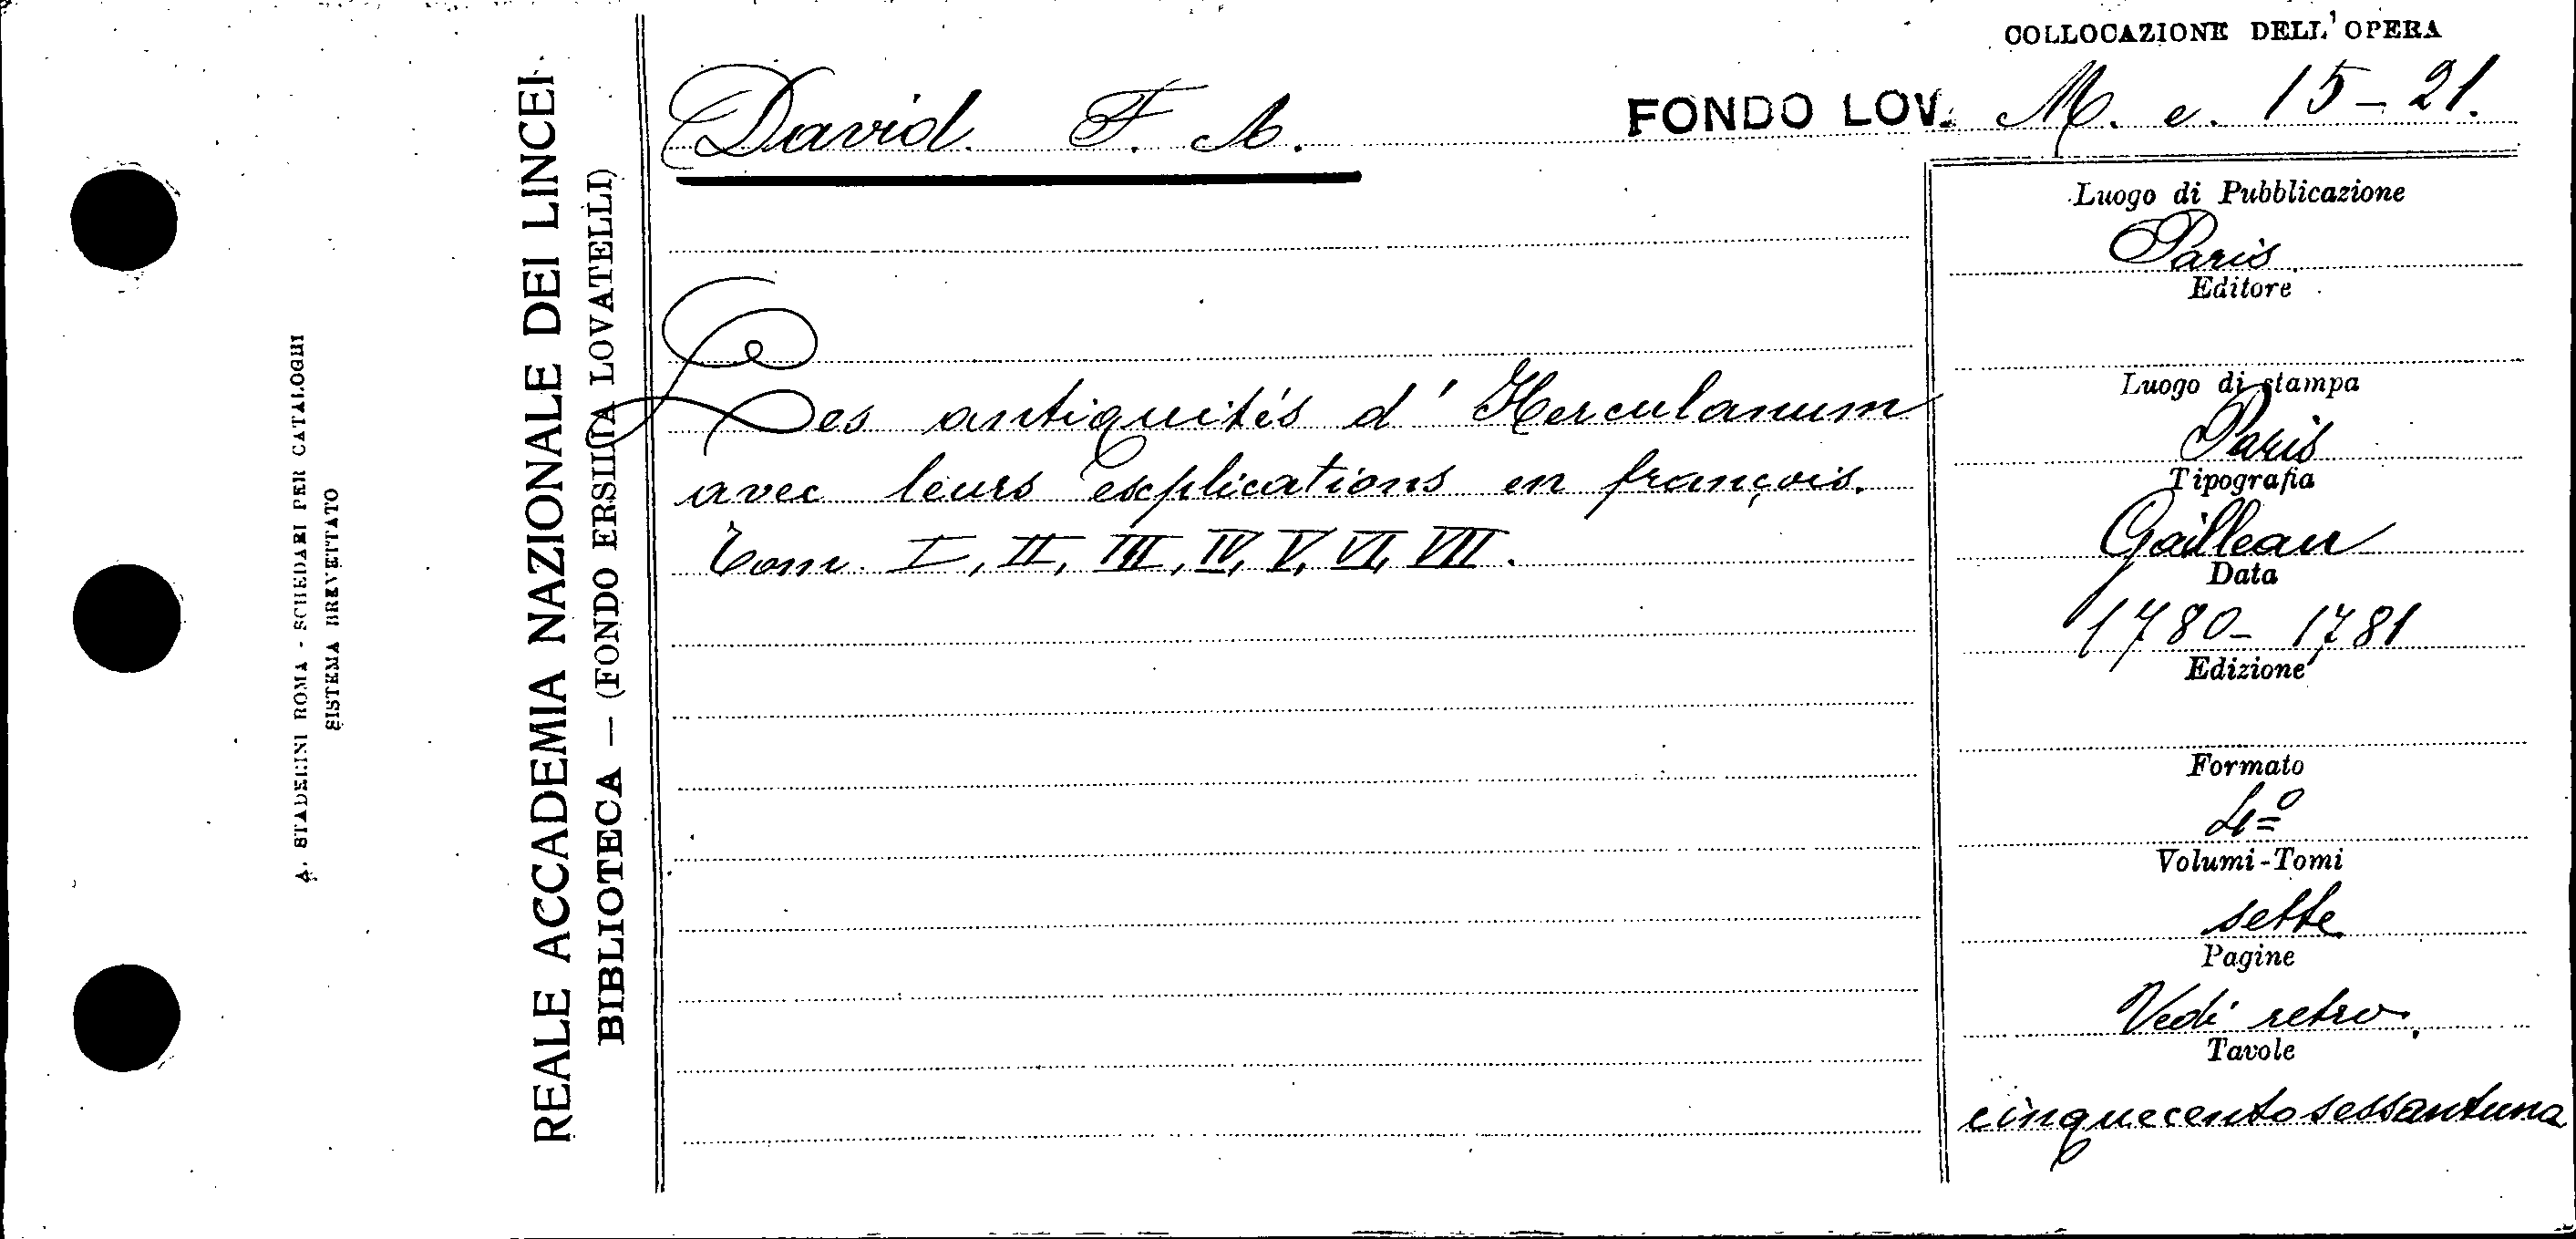 COLLOCAZIONE DELL'OPERA
David F. A.
FONDO LOV. M. e. 15-21.
Les antiquités d'Herculanum
avec leurs explications en françois.
Tom. I, II, III, IV, V, VI, VII.
Luogo di Pubblicazione
Paris
Editore
Luogo di stampa
Paris
Tipografia
Gailleau
Data
1780-1781
Edizione
Formato
4º
Volumi-Tomi
sette
Pagine
Vedi retro.
Tavole
cinquecentosessantuna
REALE ACCADEMIA NAZIONALE DEI LINCEI
BIBLIOTECA — (FONDO ERSILIA LOVATELLI)
A. STADERINI ROMA - SCHEDARI PER CATALOGHI
SISTEMA BREVETTATO